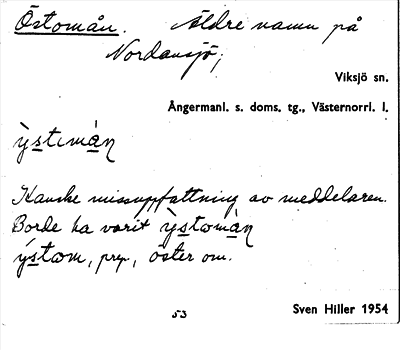 Östomån. Äldre namn på
Nordansjö;
Viksjö sn.
Ångermanl. s. doms. tg., Västernorrl. l.
ỳstɩmàn
Kanske missuppfattning av meddelaren.
Borde ha varit ỳstomàn
ýstom, prep, öster om.
53
Sven Hiller 1954